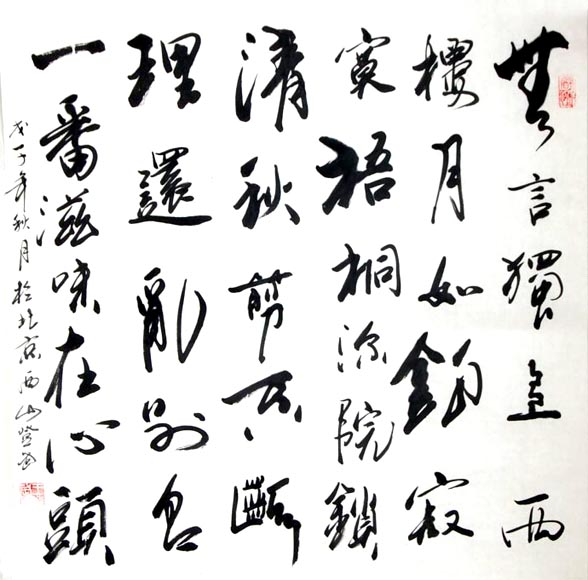 無言獨上西
樓月如鈎寂
寞梧桐深院鎖
清秋剪不斷
理還亂別是
一番滋味在心頭
戊子年秋月於北京西山